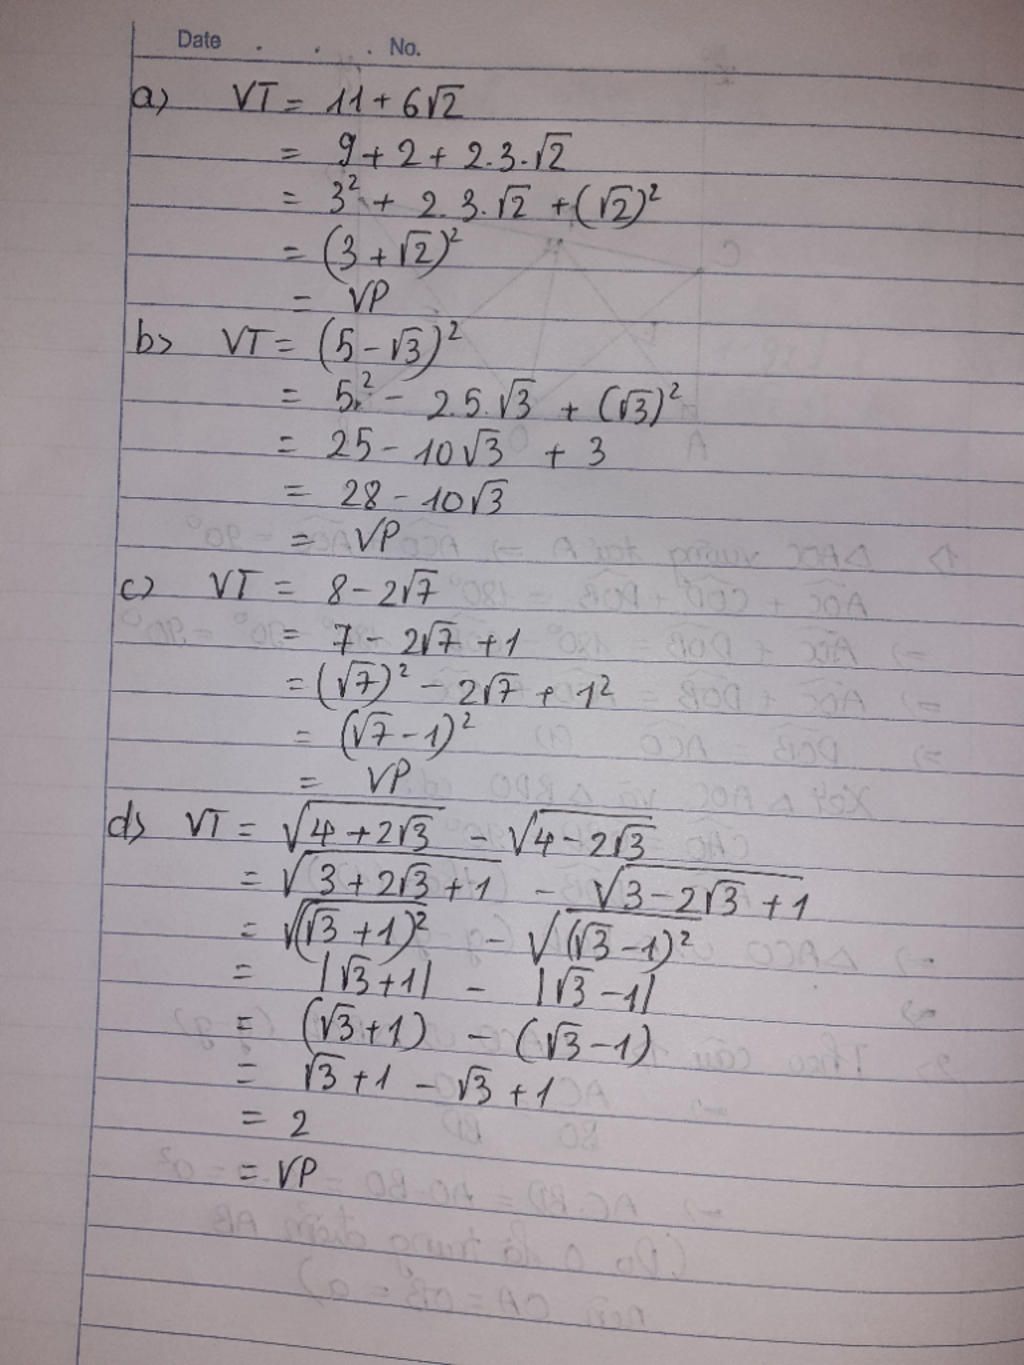 Date . . . No.
a) VT = 11 + 6√2
= 9 + 2 + 2.3.√2
= 3² + 2.3.√2 + (√2)²
= (3 + √2)²
= VP
b) VT = (5 - √3)²
= 5² - 2.5.√3 + (√3)²
= 25 - 10√3 + 3
= 28 - 10√3
= VP
c) VT = 8 - 2√7
= 7 - 2√7 + 1
= (√7)² - 2√7 + 1²
= (√7 - 1)²
= VP
d) VT = √(4 + 2√3) - √(4 - 2√3)
= √(3 + 2√3 + 1) - √(3 - 2√3 + 1)
= √((√3 + 1)²) - √((√3 - 1)²)
= |√3 + 1| - |√3 - 1|
= (√3 + 1) - (√3 - 1)
= √3 + 1 - √3 + 1
= 2
= VP